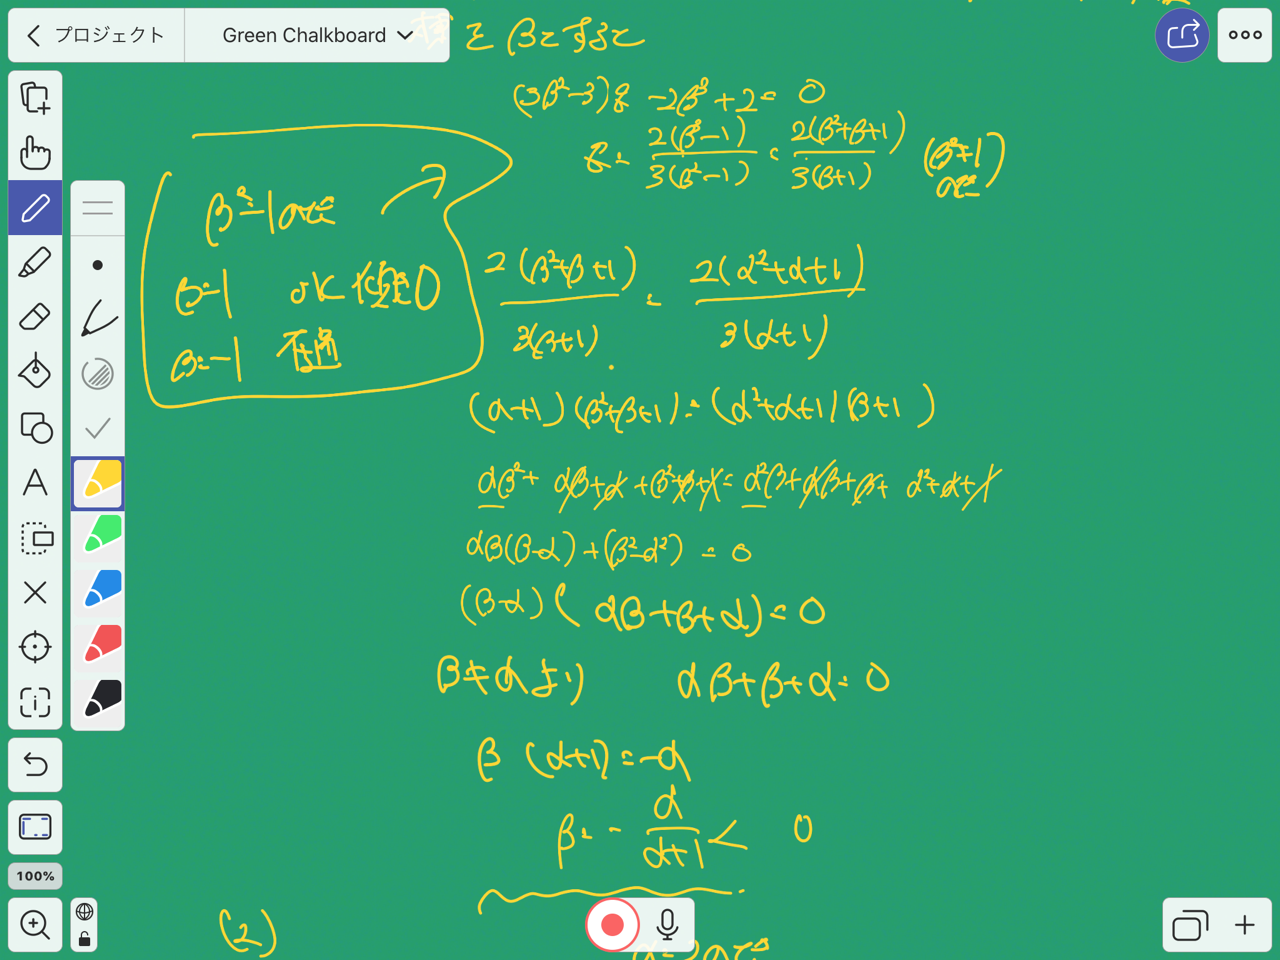 プロジェクト Green Chalkboard
を βとすると
(3β²-3)
-2β³+2= 0
= 2(β³-1) / 3(β²-1) = 2(β²+β+1) / 3(β+1) (β²≠1 のとき)
β²=1のとき
β=1 OK
β=-1 不適
2(β²+β+1) / 3(β+1) = 2(α²+α+1) / 3(α+1)
(α+1)(β²+β+1)=(α²+α+1)(β+1)
αβ²+αβ+α+β²+β+1=α²β+αβ+β+α²+α+1
αβ(β-α)+(β²-α²) = 0
(β-α)(αβ+β+α)=0
β≠αより αβ+β+α=0
β(α+1)=-α
β=-α/α+1 < 0
(2)
100%